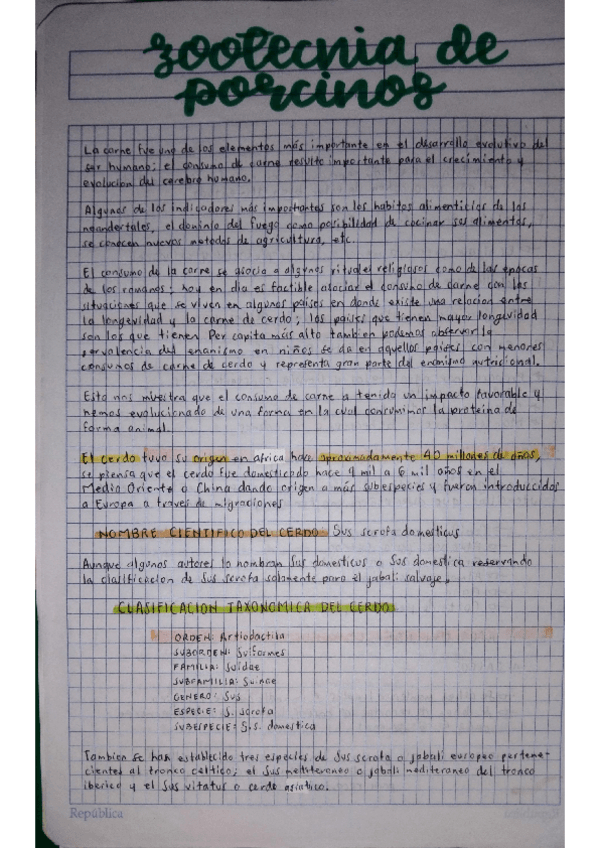 zootecnia de
porcinos
La carne fue uno de los elementos más importante en el desarrollo evolutivo del
ser humano; el consumo de carne resulto importante para el crecimiento y
evolucion del cerebro humano.
Algunos de los indicadores más importantes son los habitos alimenticios de los
neandertales, el dominio del fuego como posibilidad de cocinar sus alimentos,
se conocen nuevos metodos de agricultura, etc.
El consumo de la carne se asocia a algunos rituales religiosos como de las epocas
de los romanos; hoy en dia es factible asociar el consumo de carne con las
situaciones que se viven en algunos paises en donde existe una relacion entre
la longevidad y la carne de cerdo; los paises que tienen mayor longevidad
son los que tienen Per capita más alto tambien podemos observar la
prevalencia del enanismo en niños se da en aquellos paises con menores
consumos de carne de cerdo y representa gran parte del enanismo nutricional.
Esto nos muestra que el consumo de carne a tenido un impacto favorable y
hemos evolucionado de una forma en la cual consumimos la proteina de
forma animal.
El cerdo tuvo su origen en africa hace aproximadamente 40 millones de años,
se piensa que el cerdo fue domesticado hace 9 mil a 6 mil años en el
Medio Oriente o China dando origen a más subespecies y fueron introducidos
a Europa a traves de migraciones
NOMBRE CIENTIFICO DEL CERDO: Sus scrofa domesticus
Aunque algunos autores lo nombran Sus domesticus o Sus domestica reservando
la clasificacion de Sus scrofa solamente para el jabali salvaje.
CLASIFICACION TAXONOMICA DEL CERDO
ORDEN: Artiodactila
SUBORDEN: Suiformes
FAMILIA: Suidae
SUBFAMILIA: Suinae
GENERO: Sus
ESPECIE: S. scrofa
SUBESPECIE: S.s. domestica
Tambien se han establecido tres especies de Sus scrofa o jabali europeo pertene-
cientes al tronco celtico; el Sus mediteraneo o jabali mediteraneo del tronco
iberico y el Sus vitatus o cerdo asiatico.
República